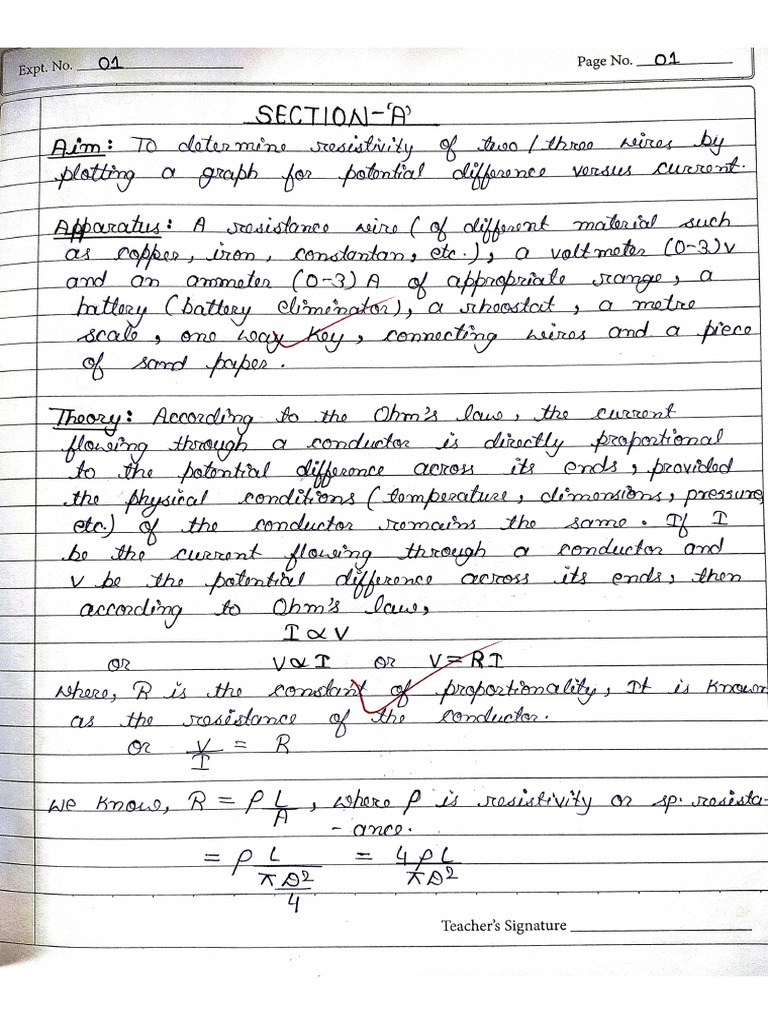 Expt. No. 01
Page No. 01
SECTION-'A'
Aim: To determine resistivity of two/three wires by
plotting a graph for potential difference versus current.
Apparatus: A resistance wire (of different material such
as copper, iron, constantan, etc.), a voltmeter (0-3)V
and an ammeter (0-3) A of appropriate range, a
battery (battery eliminator), a rheostat, a metre
scale, one way key, connecting wires and a piece
of sand paper.
Theory: According to the Ohm's law, the current
flowing through a conductor is directly proportional
to the potential difference across its ends, provided
the physical conditions (temperature, dimensions, pressure,
etc.) of the conductor remains the same. If I
be the current flowing through a conductor and
V be the potential difference across its ends, then
according to Ohm's law,
I ∝ V
or V ∝ I or V = RI
where, R is the constant of proportionality, It is known
as the resistance of the conductor.
or V/I = R
We know, R = ρ L/A, where ρ is resistivity or sp. resista-
-ance.
= ρ L/(πD²/4) = 4ρL/πD²
Teacher's Signature